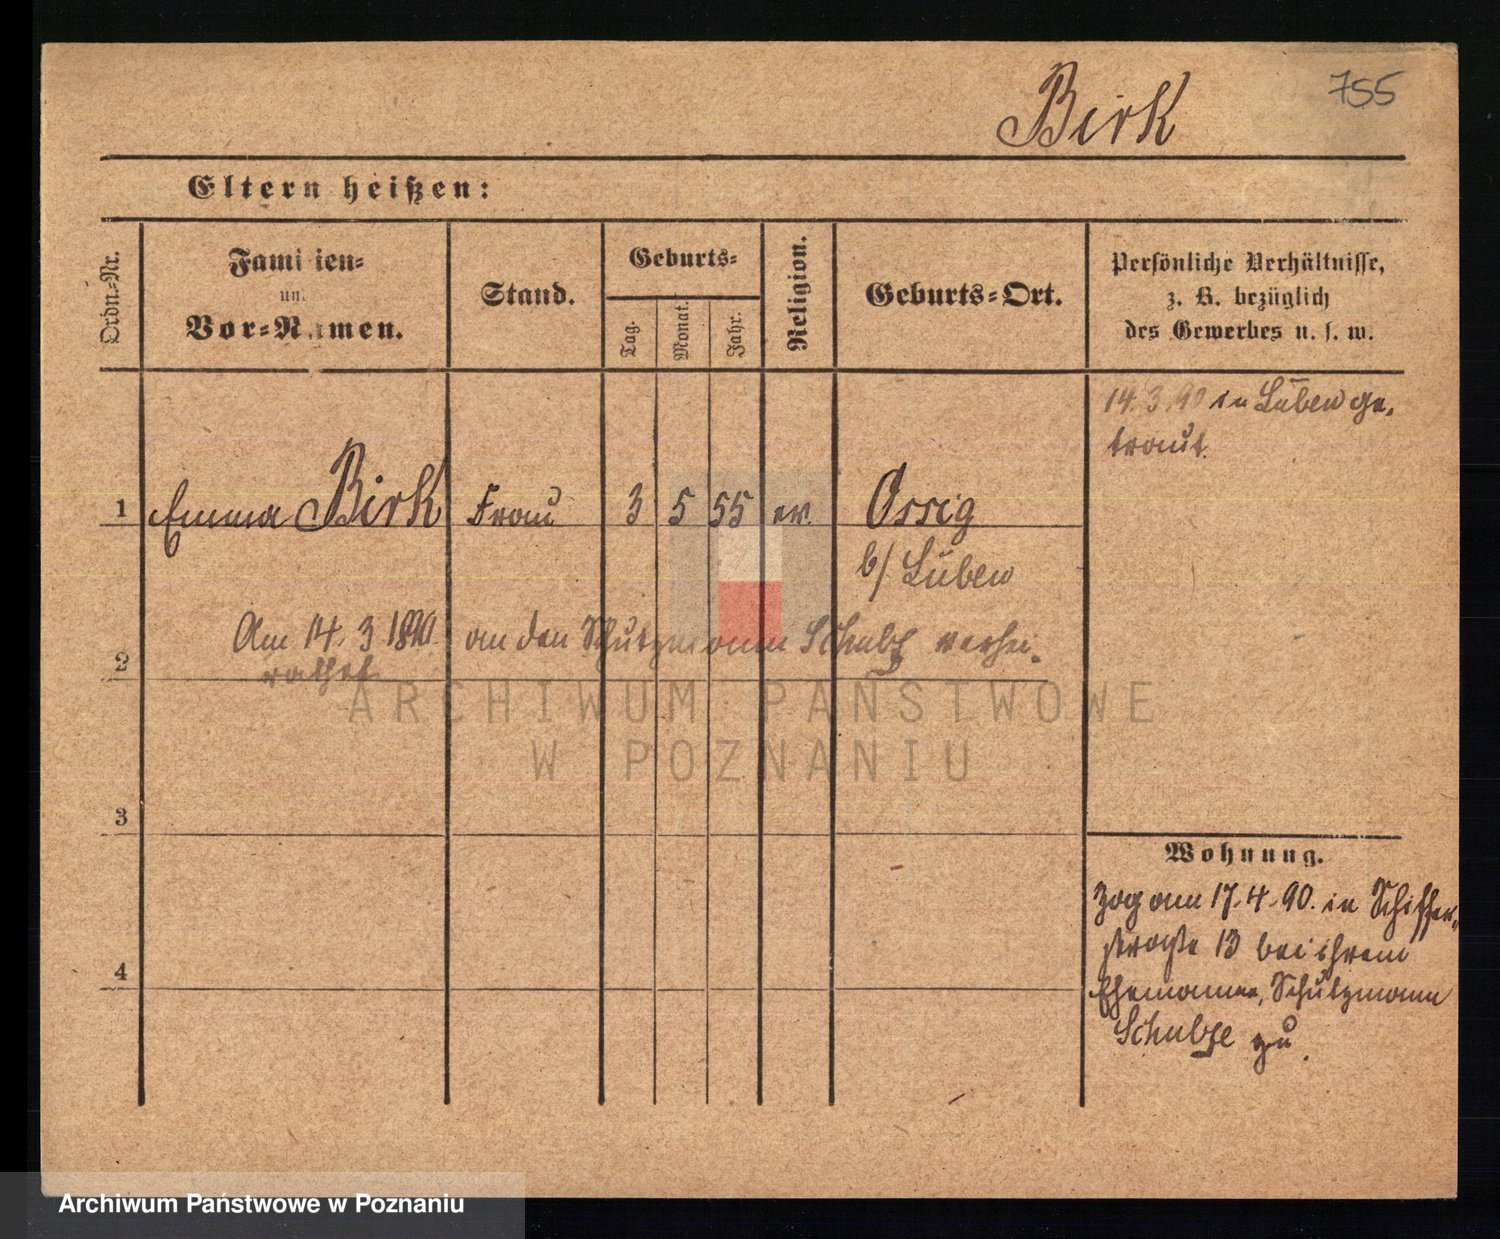 755
Birk
Eltern heißen:
Ordn.-Nr.
Fami ien-
un
Vor-N men.
Stand.
Geburts-
Tag.
Monat.
Jahr.
Religion.
Geburts-Ort.
Persönliche Verhältnisse,
z. B. bezüglich
des Gewerbes u. s. w.
14.3.90 in Lüben ge-
traut.
1 Emma Birk Frau 3 5 55 ev. Ossig
b/ Lüben
Am 14. 3 1890 an den Schutzmann Schulze verhei-
rathet
2
3
4
Wohnung.
Zog am 17.4.90. in Schiffer-
straße 13 bei ihrem
Ehemanne, Schutzmann
Schulze zu.
ARCHIWUM PAŃSTWOWE
W POZNANIU
Archiwum Państwowe w Poznaniu